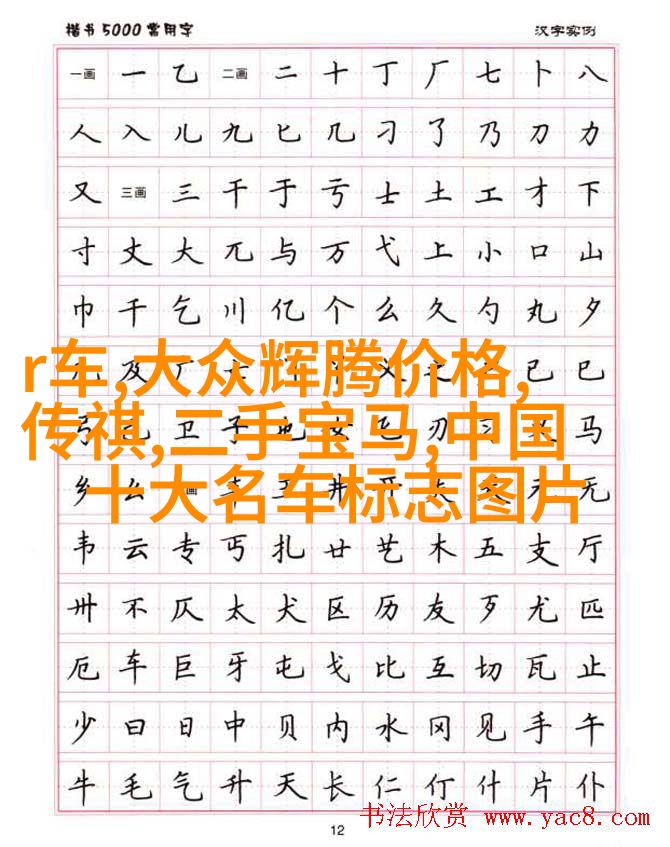 楷书5000常用字 汉字实例
一画 一 乙 二画 二 十 丁 厂 七 卜 八
人 入 儿 九 匕 几 刁 了 乃 刀 力
又 三画 三 干 于 亏 士 土 工 才 下
寸 丈 大 兀 与 万 弋 上 小 口 山
巾 千 乞 川 亿 个 么 久 勺 丸 夕
及 广 已 巳
r车,大众辉腾价格,
弓 卫 子 也 女 飞 刃 习 马
传祺,二手宝马,中国
乡 幺 丰 王 井 开 夫 天 无
十大名车标志图片
韦 云 专 丐 扎 廿 艺 木 五 支 厅
卅 不 仄 太 犬 区 历 友 歹 尤 匹
厄 车 巨 牙 屯 戈 比 互 切 瓦 止
少 曰 日 中 贝 内 水 冈 见 手 午
牛 毛 气 升 夭 长 仁 仃 什 片 仆
12 书法欣赏 www.yac8.com